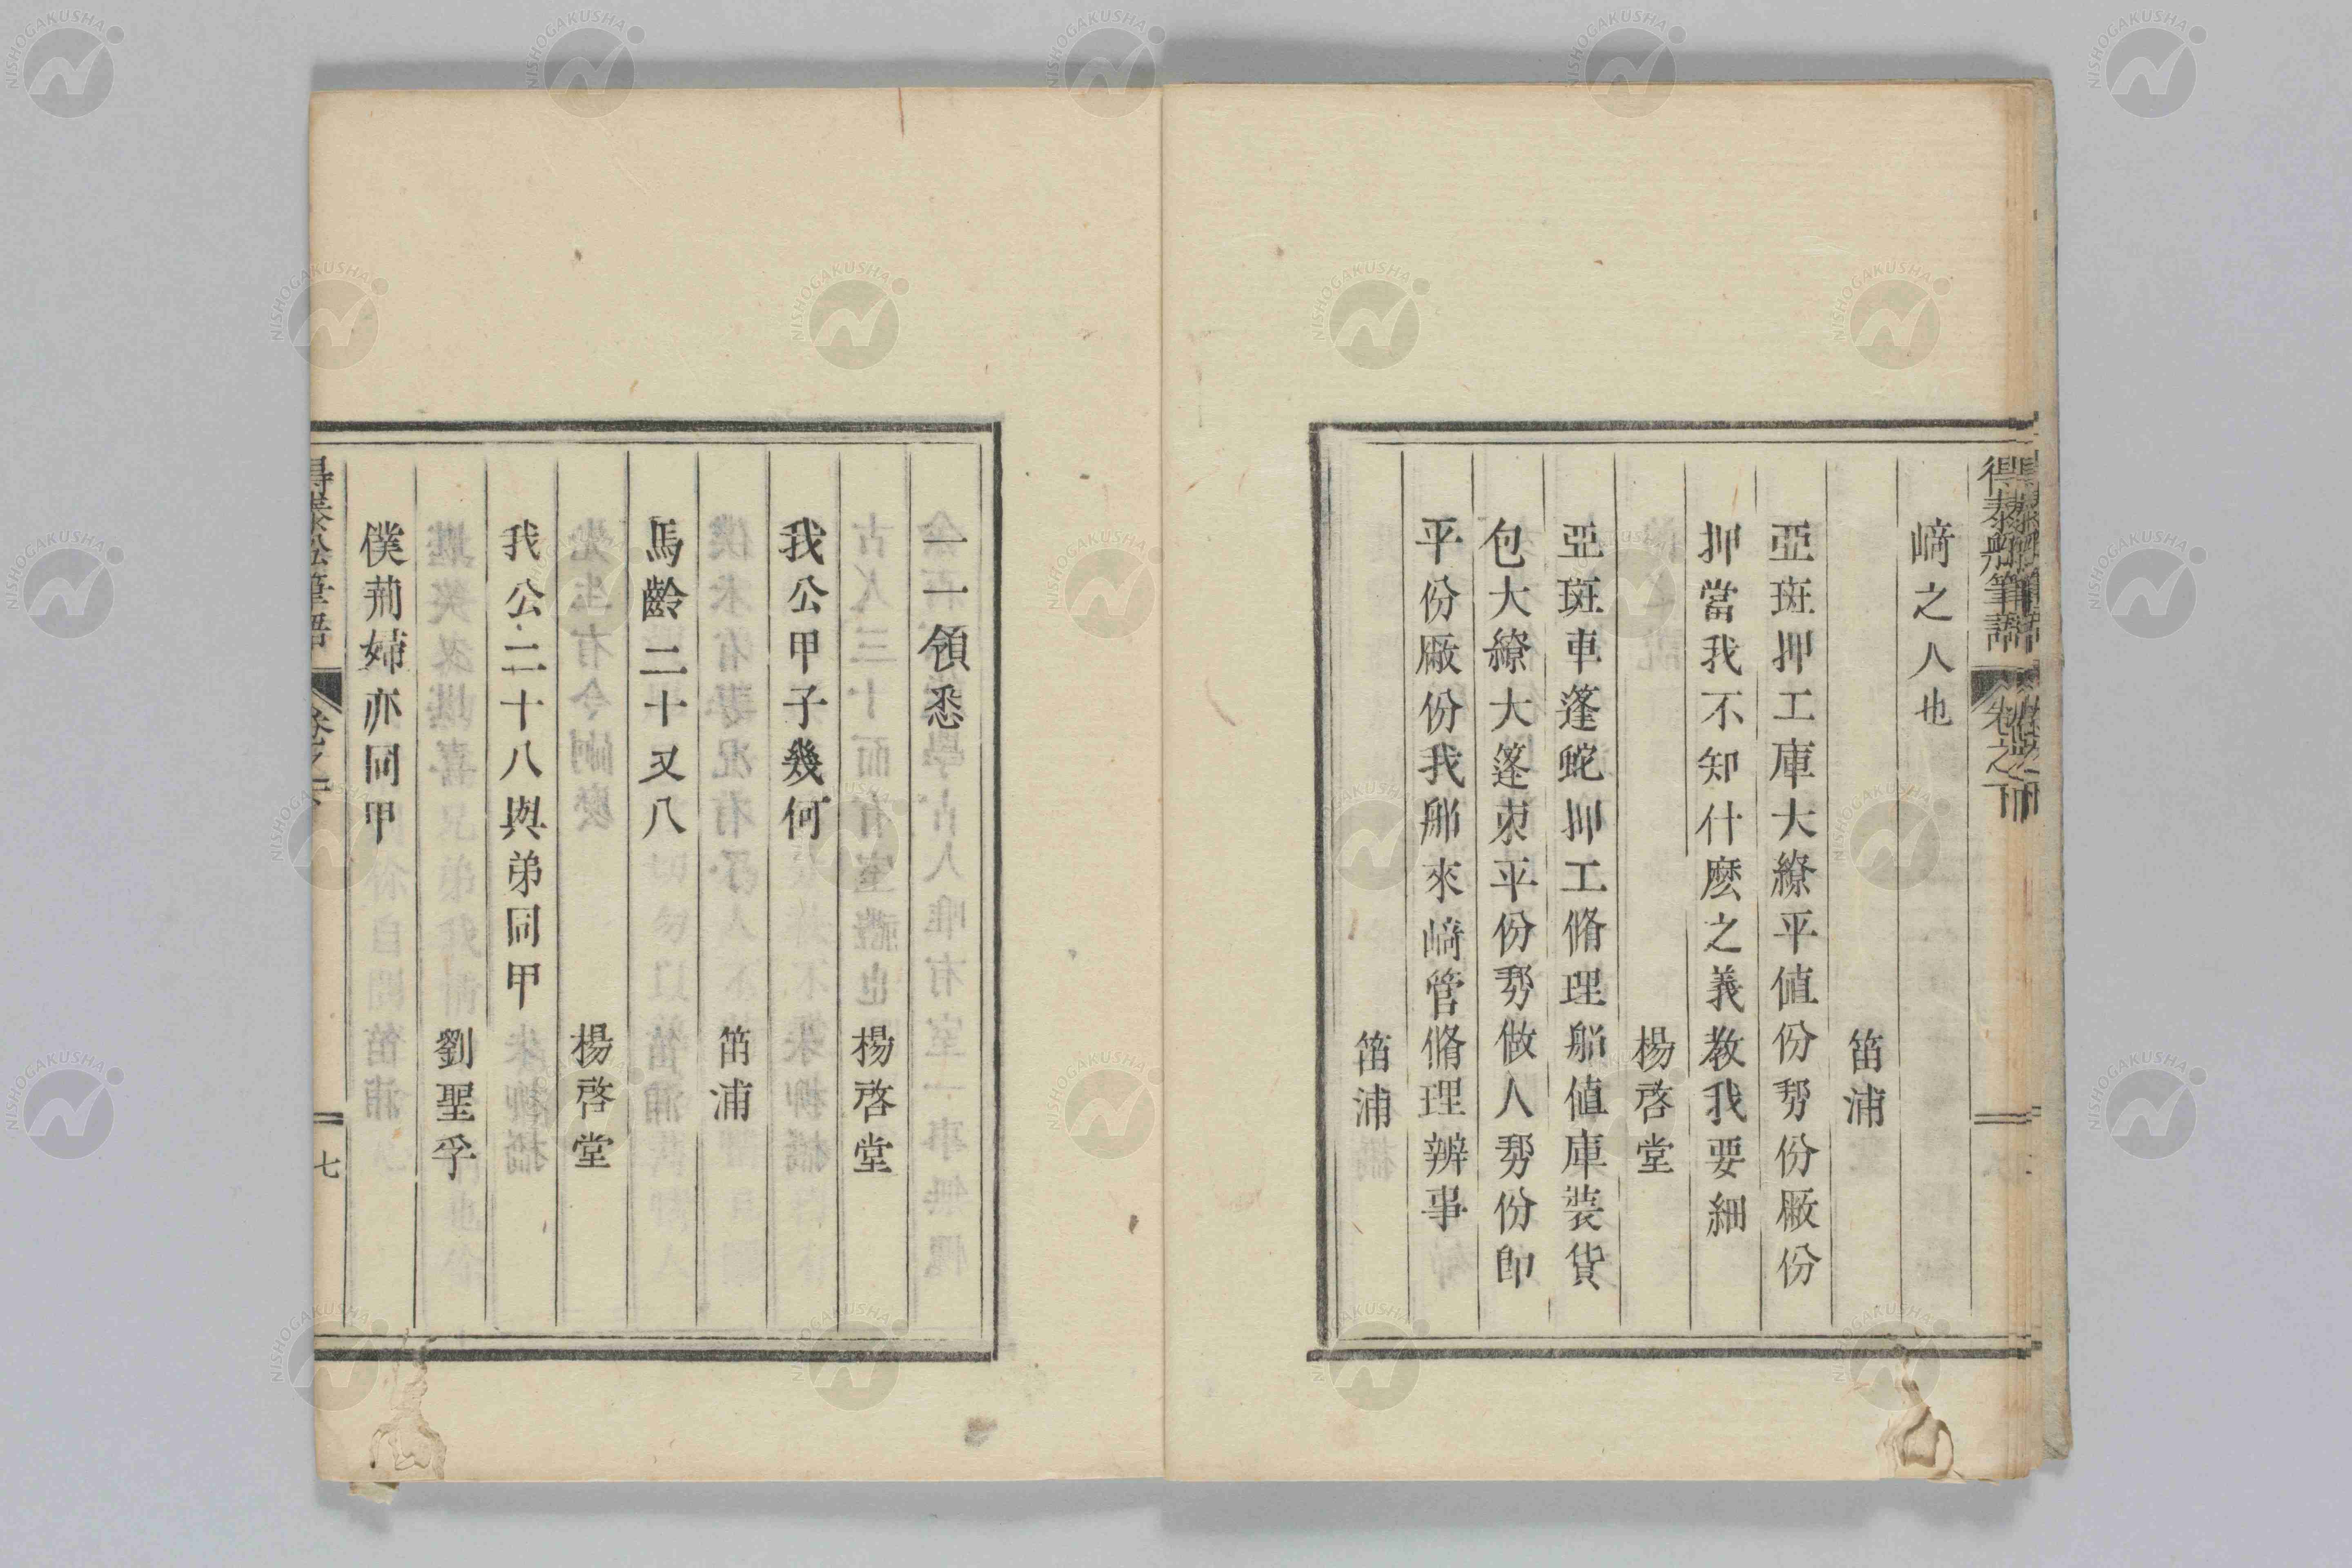 得泰船筆語 卷之下
﨑之人也
笛浦
亞斑押工庫大繚平值份𫝑份厰份
押當我不知什麽之義教我要細
楊啓堂
亞斑車蓬蛇押工脩理船值庫裝貨
包大繚大篷東平份𫝑做人𫝑份卽
平份厰份我船來﨑管脩理辨事
笛浦
一一領悉
楊啓堂
我公甲子幾何
笛浦
馬齡二十又八
楊啓堂
我公二十八與弟同甲
劉聖孚
僕荊婦亦同甲
七
NISHOGAKUSHA